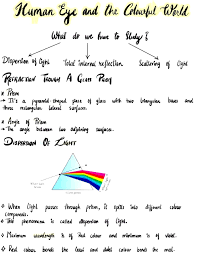 Human Eye and the Colourful World
What do we have to Study?
Dispersion of light Total Internal reflection Scattering of light
REFRACTION TROUGH A GLASS PRISM
* Prism
→ It's a pyramid-shaped piece of glass with two triangular bases and
three rectangular lateral surfaces.
* Angle of Prism
→ The angle between two adjoining surfaces.
DISPERSION OF LIGHT
* When light passes through prism, it splits into different colour
components.
* This phenomena is called dispersion of light.
* Maximum wavelength is of Red colour and minimum is of violet.
* Red colour bends the least and violet colour bends the most.